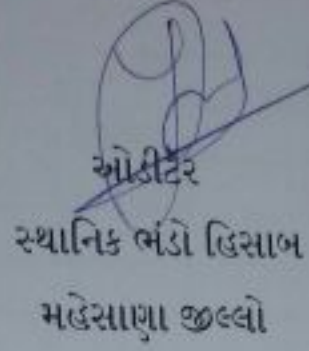 ઓડીટર
સ્થાનિક ભંડો હિસાબ
મહેસાણા જીલ્લો